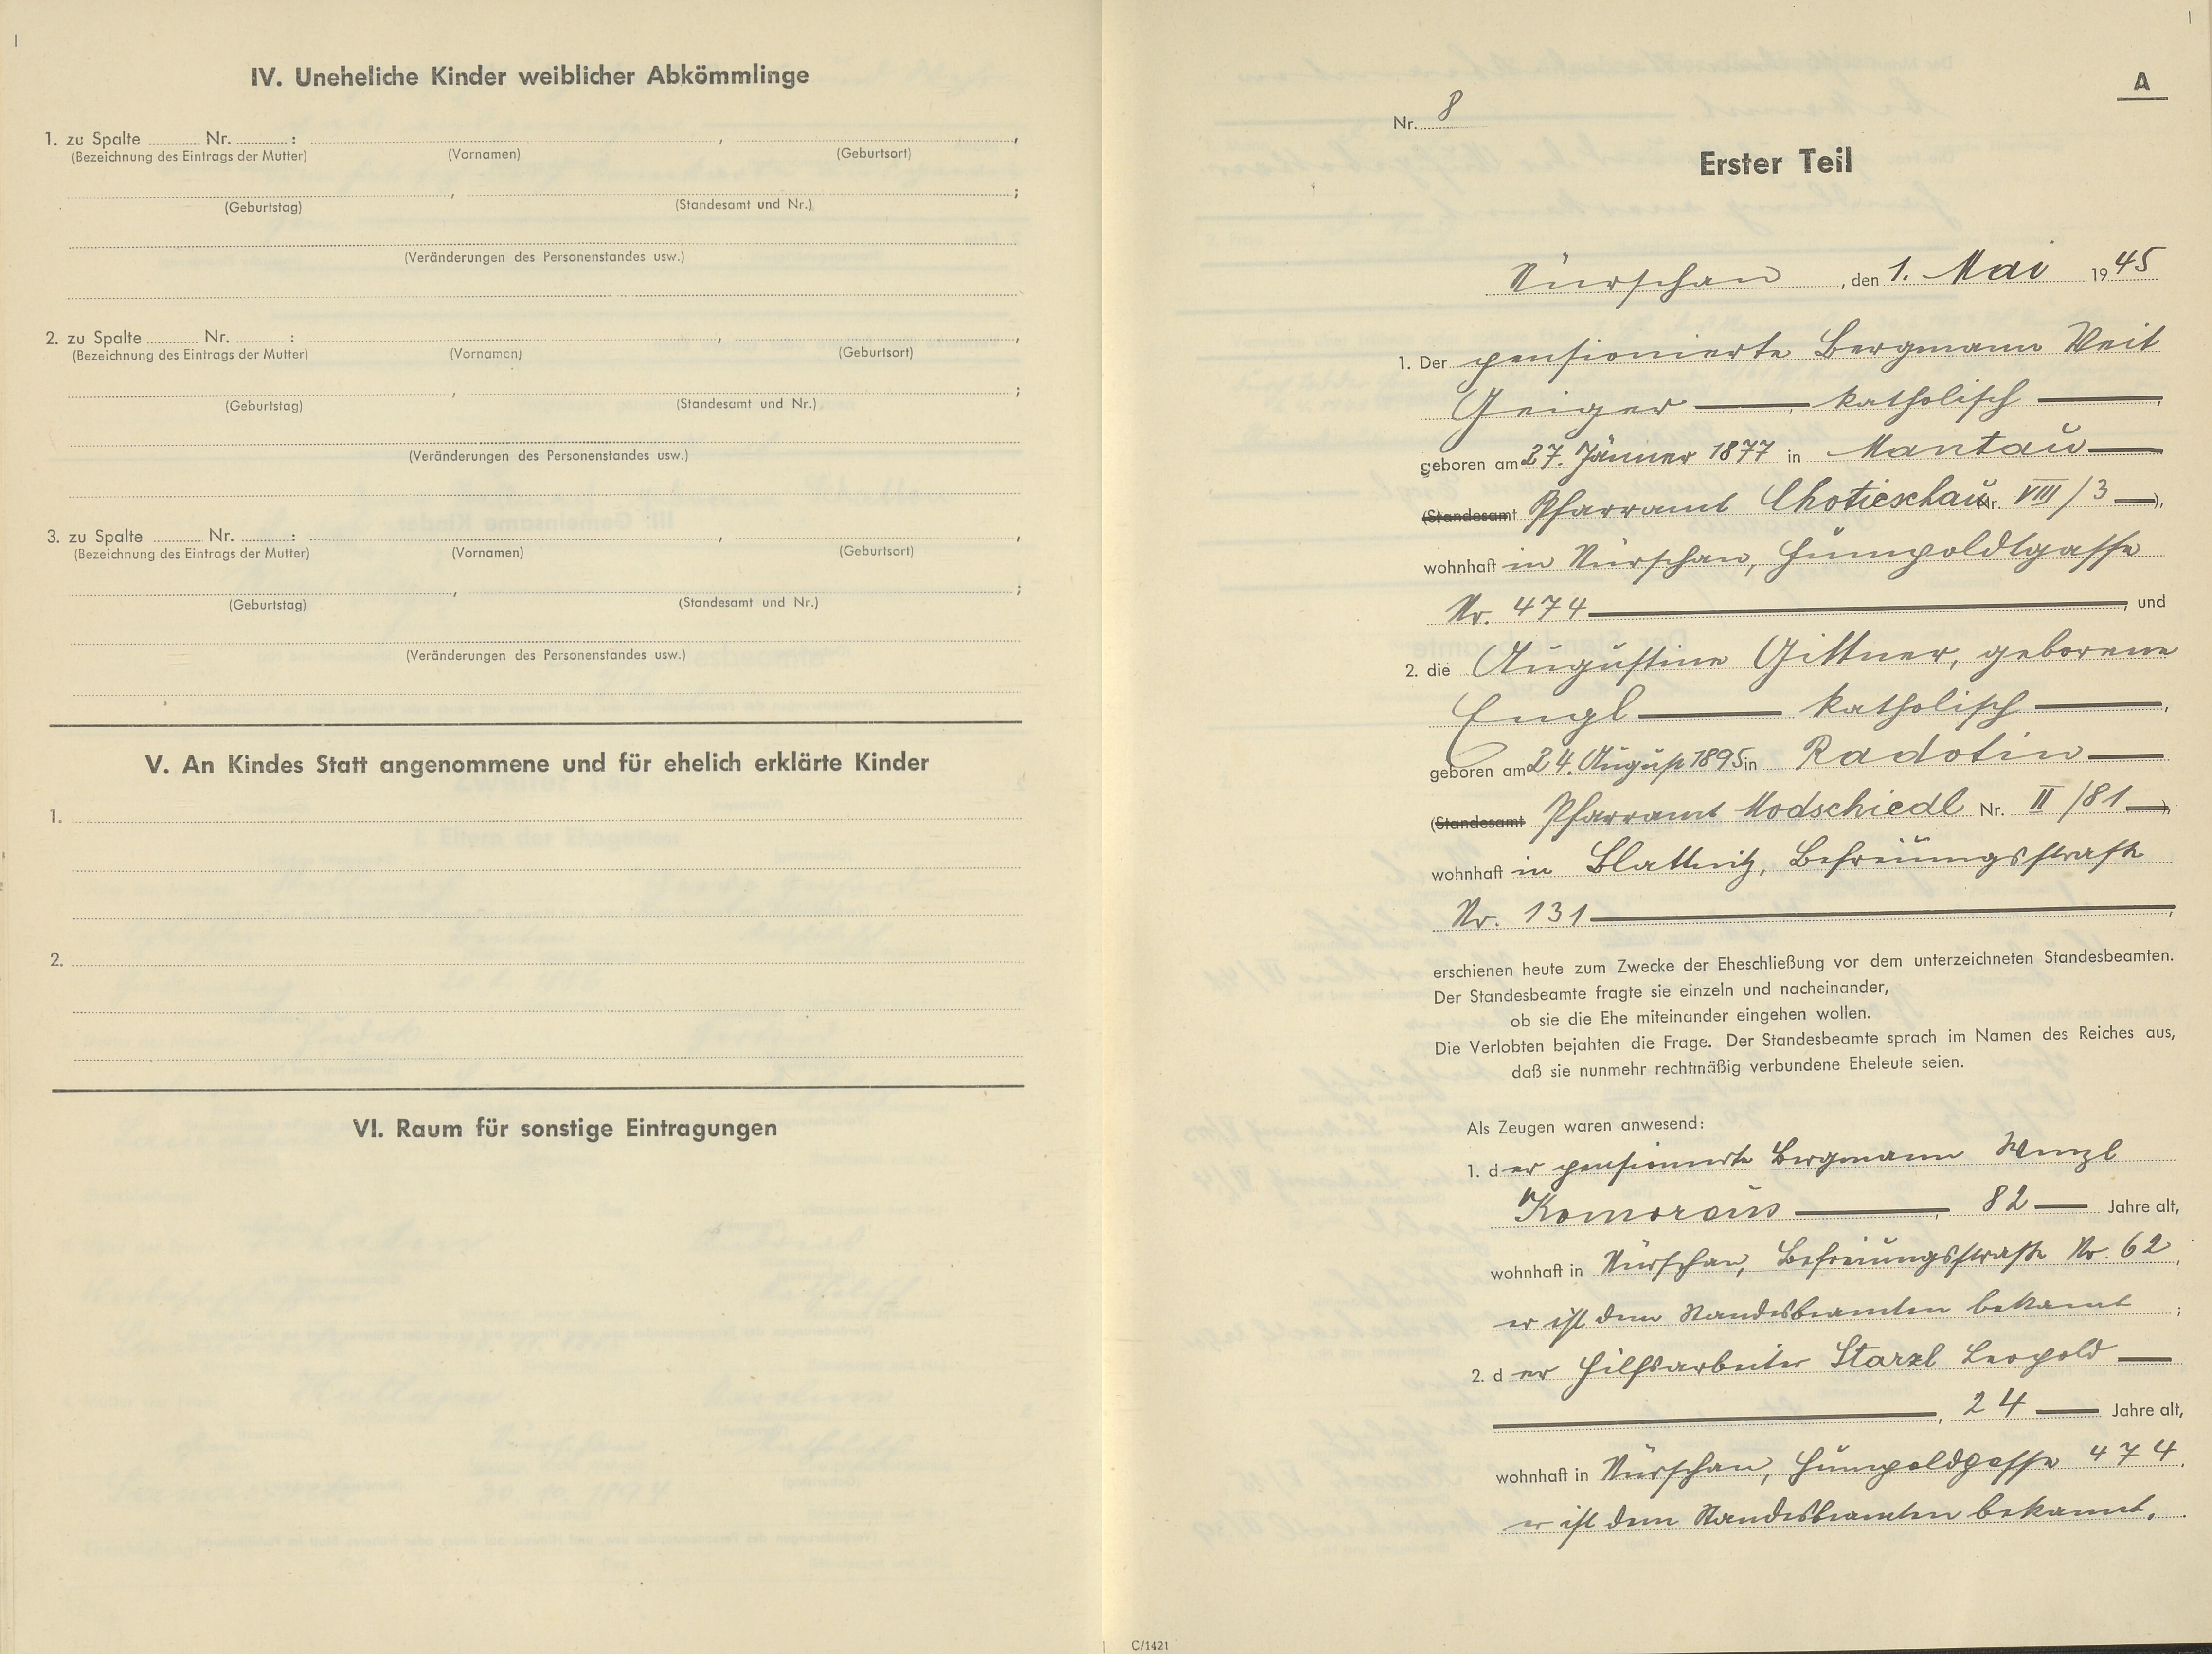 IV. Uneheliche Kinder weiblicher Abkömmlinge
1. zu Spalte ........ Nr. ........ : ........ , ........ ,
(Bezeichnung des Eintrags der Mutter) (Vornamen) (Geburtsort)
........ , ........ ;
(Geburtstag) (Standesamt und Nr.)
(Veränderungen des Personenstandes usw.)
2. zu Spalte ........ Nr. ........ : ........ , ........ ,
(Bezeichnung des Eintrags der Mutter) (Vornamen) (Geburtsort)
........ , ........ ;
(Geburtstag) (Standesamt und Nr.)
(Veränderungen des Personenstandes usw.)
3. zu Spalte ........ Nr. ........ : ........ , ........ ,
(Bezeichnung des Eintrags der Mutter) (Vornamen) (Geburtsort)
........ , ........ ;
(Geburtstag) (Standesamt und Nr.)
(Veränderungen des Personenstandes usw.)
V. An Kindes Statt angenommene und für ehelich erklärte Kinder
1.
2.
VI. Raum für sonstige Eintragungen
A
Nr. 8
Erster Teil
Nürschan, den 1. Mai 1945
1. Der pensionierte Bergmann Veit
Geiger ——, katholisch ——,
geboren am 27. Jänner 1877 in Mantau —
(Standesamt Pfarramt Chotieschau Nr. VIII/3 —),
wohnhaft in Nürschan, Humpoldtgasse
Nr. 474 ——, und
2. die Augustine Gittner, geborene
Engl —— katholisch ——,
geboren am 24. August 1895 in Radotin —
(Standesamt Pfarramt Modschiedl Nr. II/81 —),
wohnhaft in Blattnitz, Befreiungsstraße
Nr. 131 ——,
erschienen heute zum Zwecke der Eheschließung vor dem unterzeichneten Standesbeamten.
Der Standesbeamte fragte sie einzeln und nacheinander,
ob sie die Ehe miteinander eingehen wollen.
Die Verlobten bejahten die Frage. Der Standesbeamte sprach im Namen des Reiches aus,
daß sie nunmehr rechtmäßig verbundene Eheleute seien.
Als Zeugen waren anwesend:
1. der pensionierte Bergmann Wenzl
Komoraus ——, 82 — Jahre alt,
wohnhaft in Nürschan, Befreiungsstraße Nr. 62,
er ist dem Standesbeamten bekannt ;
2. der Hilfsarbeiter Starzl Leopold —
——, 24 — Jahre alt,
wohnhaft in Nürschan, Humpoldgasse 474,
er ist dem Standesbeamten bekannt.
C/1421